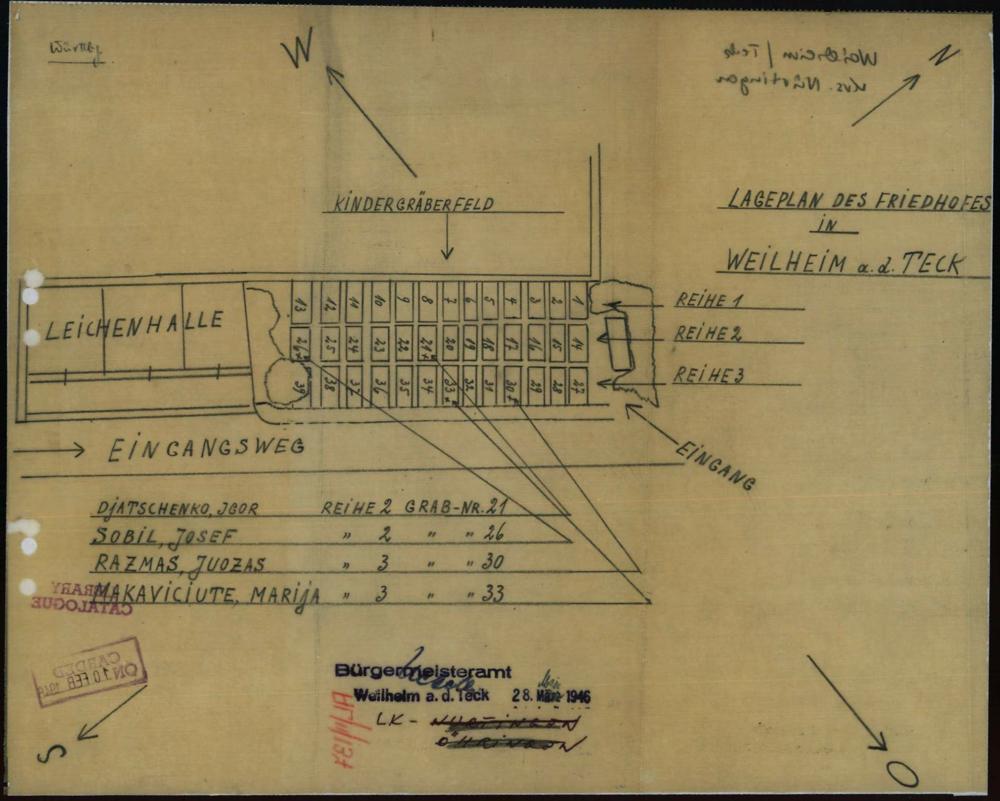 Württbg.
W
N
Weilheim / Teck
Krs. Nürtingen
KINDERGRÄBERFELD
LAGEPLAN DES FRIEDHOFES
IN
WEILHEIM a.d. TECK
13 12 11 10 9 8 7 6 5 4 3 2 1
26 25 24 23 22 21 20 19 18 17 16 15 14
39 38 37 36 35 34 33 32 31 30 29 28 27
REIHE 1
REIHE 2
REIHE 3
LEICHENHALLE
EINGANGSWEG
EINGANG
DJATSCHENKO, JGOR REIHE 2 GRAB-NR. 21
SOBIL, JOSEF " 2 " " 26
RAZMAS, JUOZAS " 3 " " 30
MAKAVICIUTE, MARIJA " 3 " " 33
LIBRARY
CATALOGUE
CARDED
ON 10 FEB 1949
Bürgermeisteramt
Weilheim a. d. Teck 28. März 1946
LK - NÜRTINGEN
ÖHRINGEN
S
O